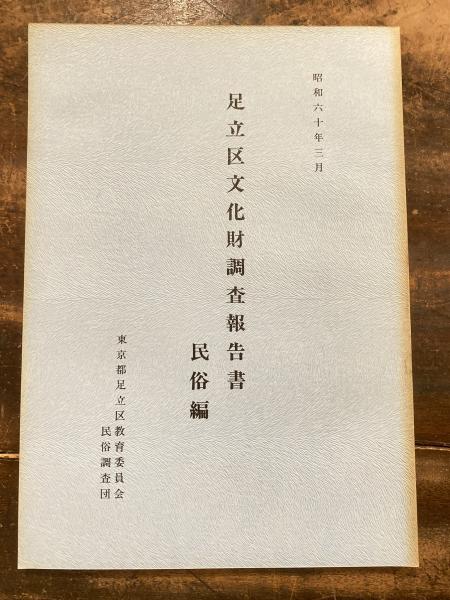 昭和六十年三月
足立区文化財調査報告書
民俗編
東京都足立区教育委員会
民俗調査団